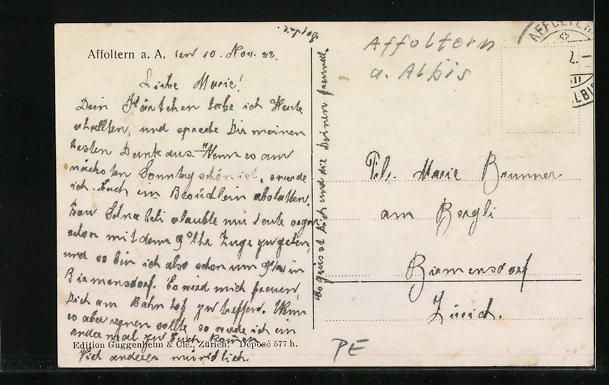 Affoltern a. A. den 10. Nov. 32.
Liebe Marie!
Dein Kärtchen habe ich Heute
erhalten, und spreche Dir meinen
besten Dank aus. Wenn es am
nächsten Sonntag schön ist, werde
ich Euch ein Besüchlein abstatten.
Frau erlaubte mir heute
schon mit dem 9 Uhr Zuge zu gehen
und so bin ich also schon um in
Birmensdorf. Es wird mich freuen,
Dich am Bahnhof zu treffen. Wenn
es aber regnen sollte, so werde ich ein
ander mal zu Euch kommen.
Edition Guggenheim & Cie., Zürich. Déposé 577 h.
Viel anderes mündlich.
Es grüsst Dich und die Deinen freundl.
Affoltern
a. Albis
AFFOLTERN
ALBIS
Frl. Marie Brunner
am Bergli
Birmensdorf
Zürich.
PE